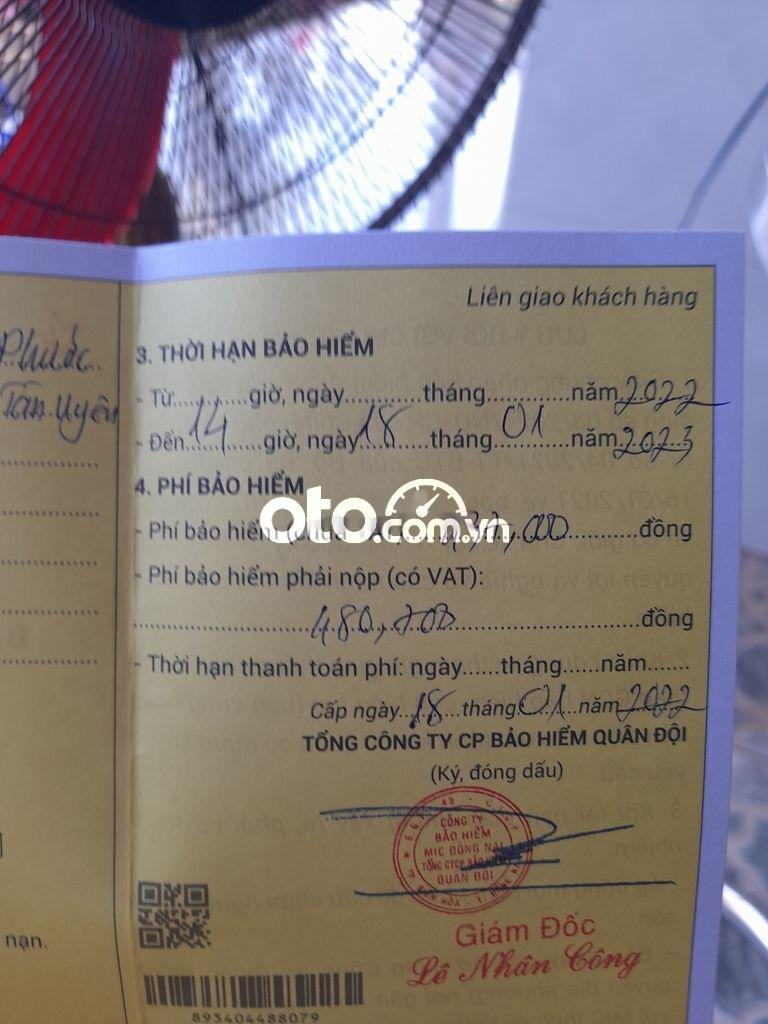 Liên giao khách hàng
Phước
Tân Uyên
3. THỜI HẠN BẢO HIỂM
- Từ..........giờ, ngày..........tháng..........năm 2022
- Đến 14 giờ, ngày 18 tháng 01 năm 2023
4. PHÍ BẢO HIỂM
- Phí bảo hiểm ,000 đồng
oto.com.vn
- Phí bảo hiểm phải nộp (có VAT):
480,700 đồng
- Thời hạn thanh toán phí: ngày......tháng......năm.......
Cấp ngày 18 tháng 01 năm 2022
TỔNG CÔNG TY CP BẢO HIỂM QUÂN ĐỘI
(Ký, đóng dấu)
CÔNG TY
BẢO HIỂM
MIC ĐỒNG NAI
TỔNG CTCP BẢO HIỂM
QUÂN ĐỘI
Giám Đốc
Lê Nhân Công
nạn.
893404488079